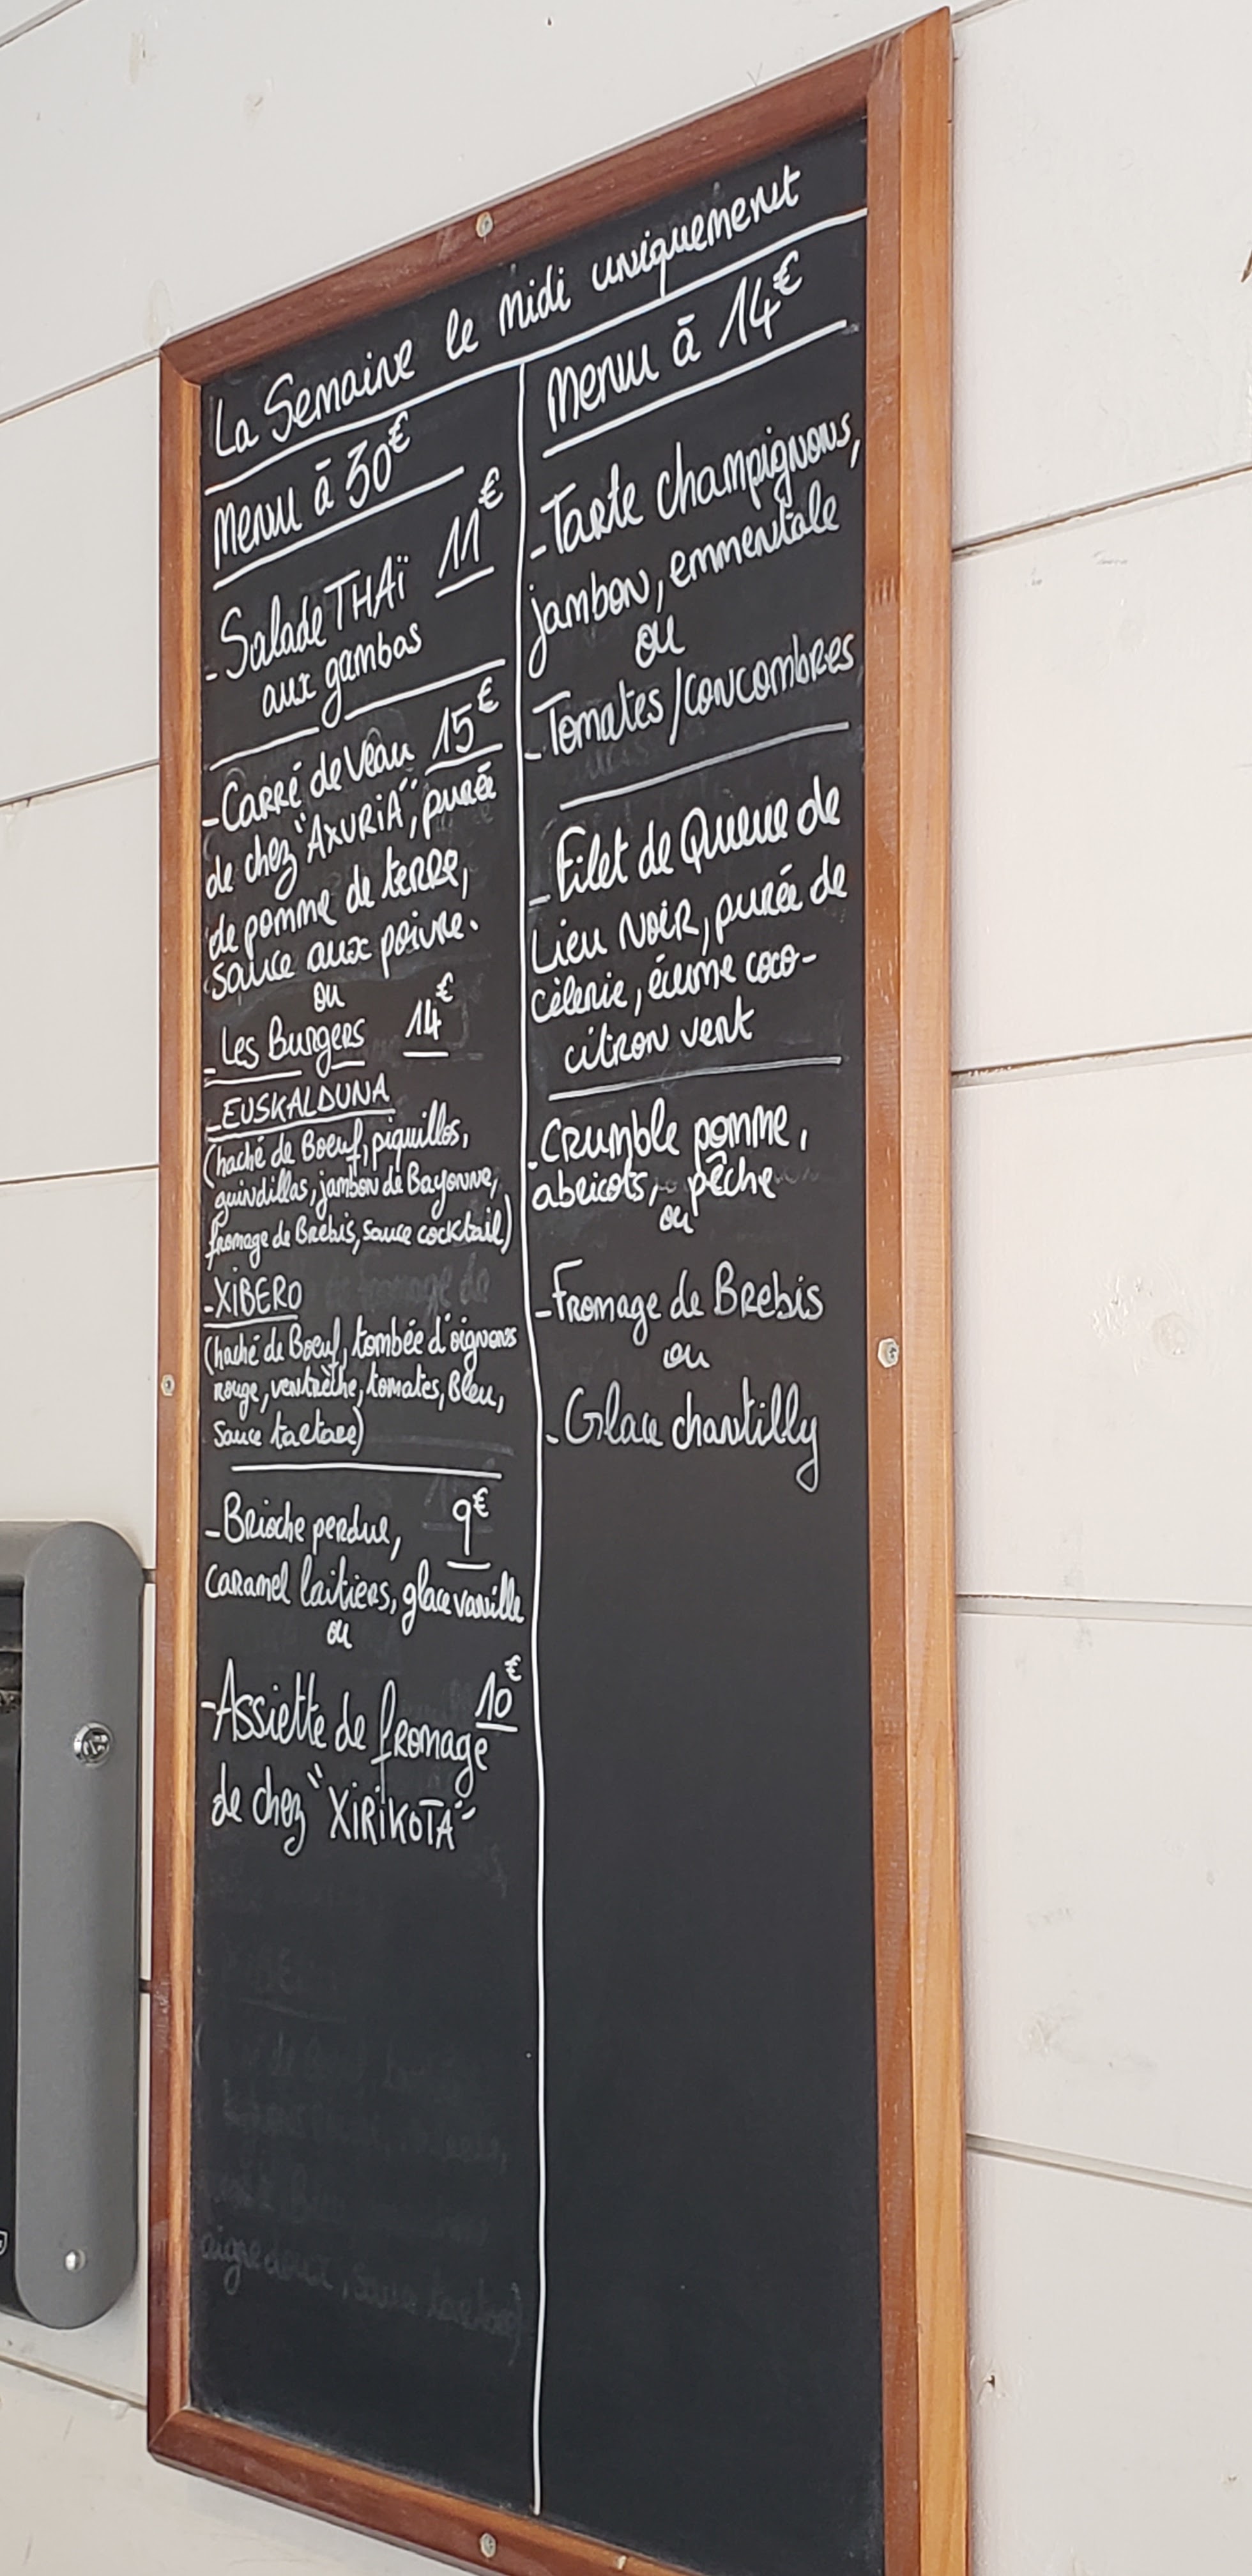 La Semaine le midi uniquement
Menu à 30€
- Salade THAï 11€
aux gambas
- Carré de Veau 15€
de chez "AXURIA", purée
de pomme de terre,
sauce aux poivre.
ou
- Les Burgers 14€
- EUSKALDUNA
(haché de Boeuf, piquillos,
guindillas, jambon de Bayonne,
fromage de Brebis, sauce cocktail)
- XIBERO
(haché de Boeuf, tombée d'oignons
rouge, ventrèche, tomates, Bleu,
sauce tartare)
- Brioche perdue, 9€
caramel laitiers, glace vanille
ou
- Assiette de fromage 10€
de chez "XIRIKOTA"
Menu à 14€
- Tarte champignons,
jambon, emmentale
ou
- Tomates/concombres
- Filet de Queue de
Lieu Noir, purée de
célerie, écume coco-
citron vert
- Crumble pomme,
abricots, pêche
ou
- Fromage de Brebis
ou
- Glace chantilly